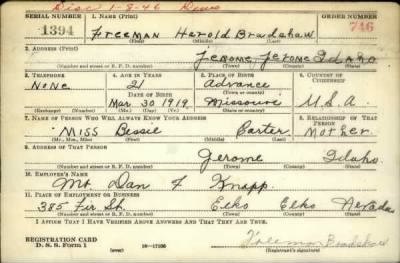 Disc 1-8-46
SERIAL NUMBER 1. NAME (Print) ORDER NUMBER
1394 Freeman Herold Bradshaw 746
(First) (Middle) (Last)
2. ADDRESS (Print)
Jerome, Jerome Idaho
(Number and street or R. F. D. number) (Town) (County) (State)
3. TELEPHONE 4. AGE IN YEARS 5. PLACE OF BIRTH 6. COUNTRY OF CITIZENSHIP
None 21 Advance
DATE OF BIRTH (Town or county)
Mar. 30 1919 Missouri U.S.A.
(Exchange) (Number) (Mo.) (Day) (Yr.) (State or country)
7. NAME OF PERSON WHO WILL ALWAYS KNOW YOUR ADDRESS 8. RELATIONSHIP OF THAT PERSON
Miss Bessie Carter Mother.
(Mr., Mrs., Miss) (First) (Middle) (Last)
9. ADDRESS OF THAT PERSON
Jerome Idaho.
(Number and street or R. F. D. number) (Town) (County) (State)
10. EMPLOYER'S NAME
Mr. Dan F Knapp.
11. PLACE OF EMPLOYMENT OR BUSINESS
385 Fir St. Elko Elko Nevada
(Number and street or R. F. D. number) (Town) (County) (State)
I AFFIRM THAT I HAVE VERIFIED ABOVE ANSWERS AND THAT THEY ARE TRUE.
REGISTRATION CARD
D. S. S. Form 1 (over) 16-17105 Freeman Bradshaw
(Registrant's signature)